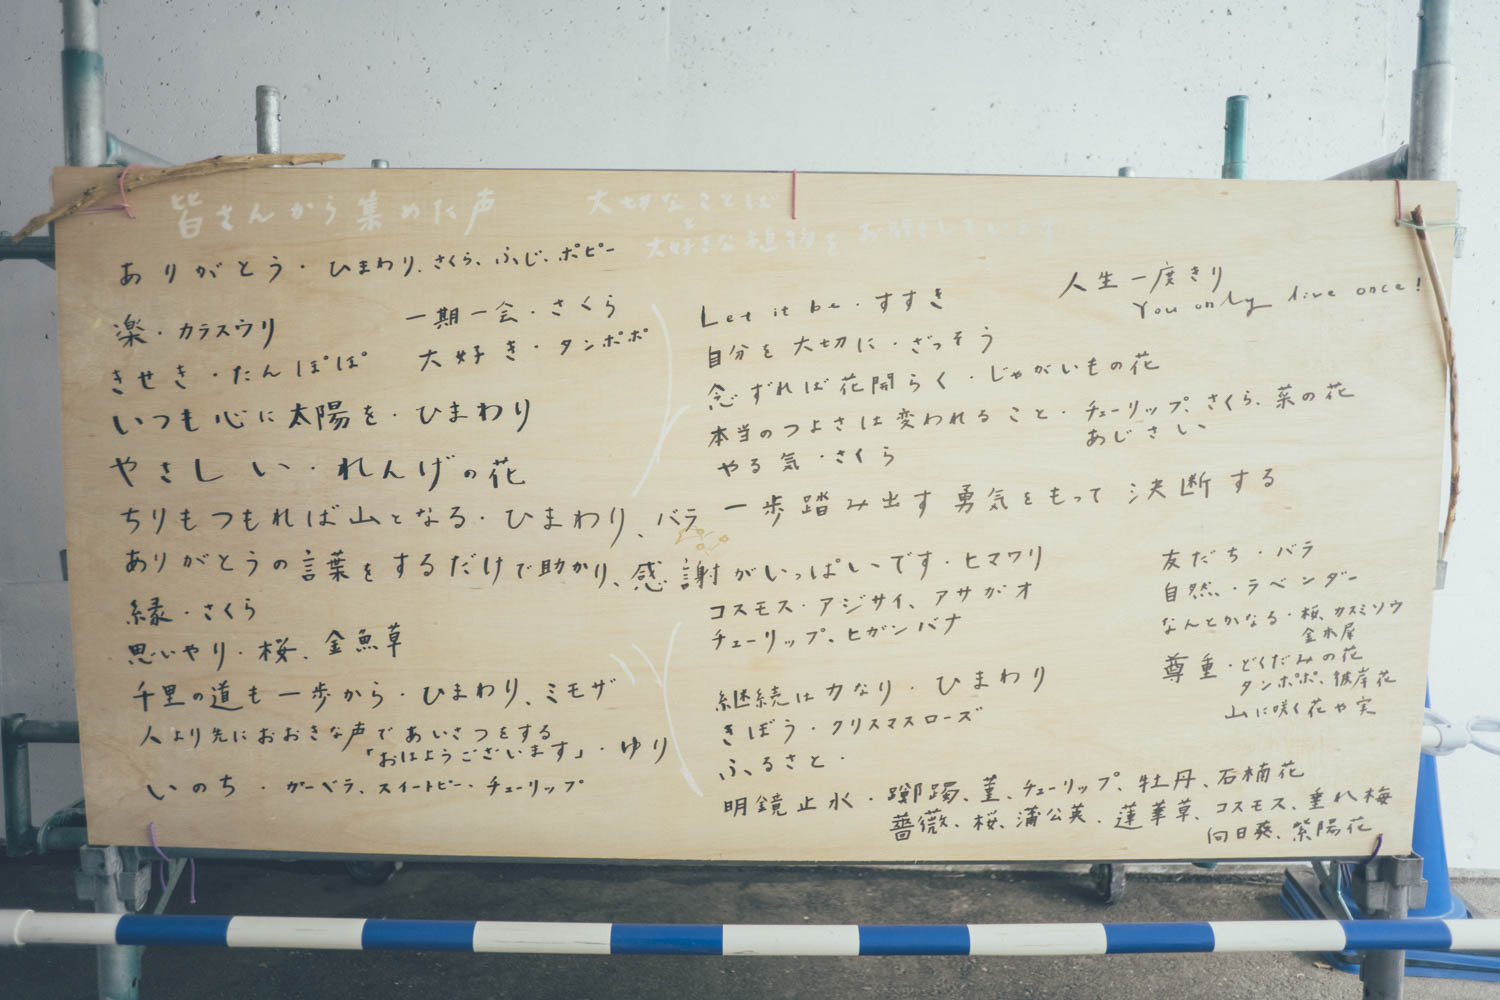 皆さんから集めた声
大切なことば
と
大好きな植物を
ありがとう・ひまわり、さくら、ふじ、ポピー
楽・カラスウリ
一期一会・さくら
きせき・たんぽぽ
大好き・タンポポ
いつも心に太陽を・ひまわり
やさしい・れんげの花
ちりもつもれば山となる・ひまわり、バラ
ありがとうの言葉をするだけで助かり、感謝がいっぱいです・ヒマワリ
コスモス・アジサイ、アサガオ
チューリップ、ヒガンバナ
縁・さくら
思いやり・桜、金魚草
千里の道も一歩から・ひまわり、ミモザ
人より先におおきな声であいさつをする
「おはようございます」・ゆり
いのち・ガーベラ、スイートピー・チューリップ
人生一度きり
You only live once!
Let it be・すすき
自分を大切に・ざっそう
念ずれば花開らく・じゃがいもの花
本当のつよさは変われること・チューリップ、さくら、菜の花
あじさい
やる気・さくら
一歩踏み出す勇気をもって決断する
友だち・バラ
自然・ラベンダー
なんとかなる・桜、カスミソウ
金木犀
尊重・どくだみの花
タンポポ、彼岸花
山に咲く花や実
継続は力なり・ひまわり
きぼう・クリスマスローズ
ふるさと・
明鏡止水・躑躅、菫、チューリップ、牡丹、石楠花
薔薇、桜、蒲公英、蓮華草、コスモス、垂れ梅
向日葵、紫陽花